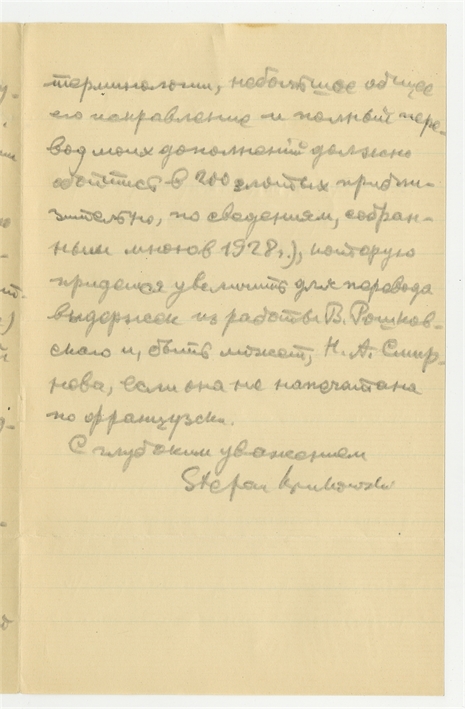 терминологии, небольшое общее
его исправление и полный пере-
вод моих дополнений должно
обойтись в 200 злотых прибли-
зительно, по сведениям, собран-
ным мною в 1928 г.), которую
придется увеличить для перевода
выдержек из работы В. Рошков-
скаго и, быть может, Н. А. Смир-
нова, если она не напечатана
по французски.
С глубоким уважением
Stefan Krukowski